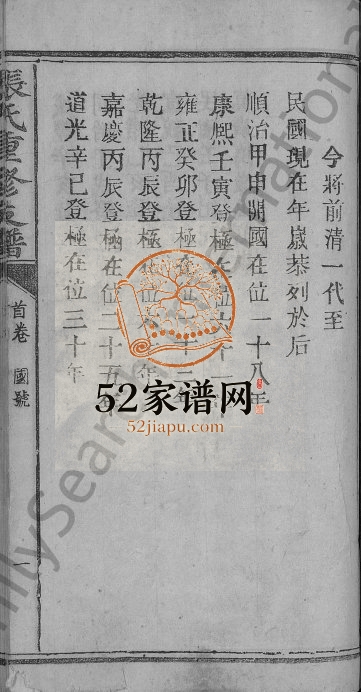 今將前清一代至
民國現在年嵗恭列於后
順治甲申開國在位一十八年
康熙壬寅登極在位六十一
雍正癸卯登極在位十三年
乾隆丙辰登極在位六十年
嘉慶丙辰登極在位二十五年
道光辛巳登極在位三十年
張氏重修支譜
首卷
國號
一
52家谱网
52jiapu.com